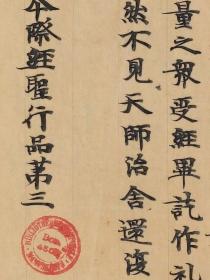 量之報受經畢訖作礼
然不見天師治舍還復
夲際經聖行品苐三
DON